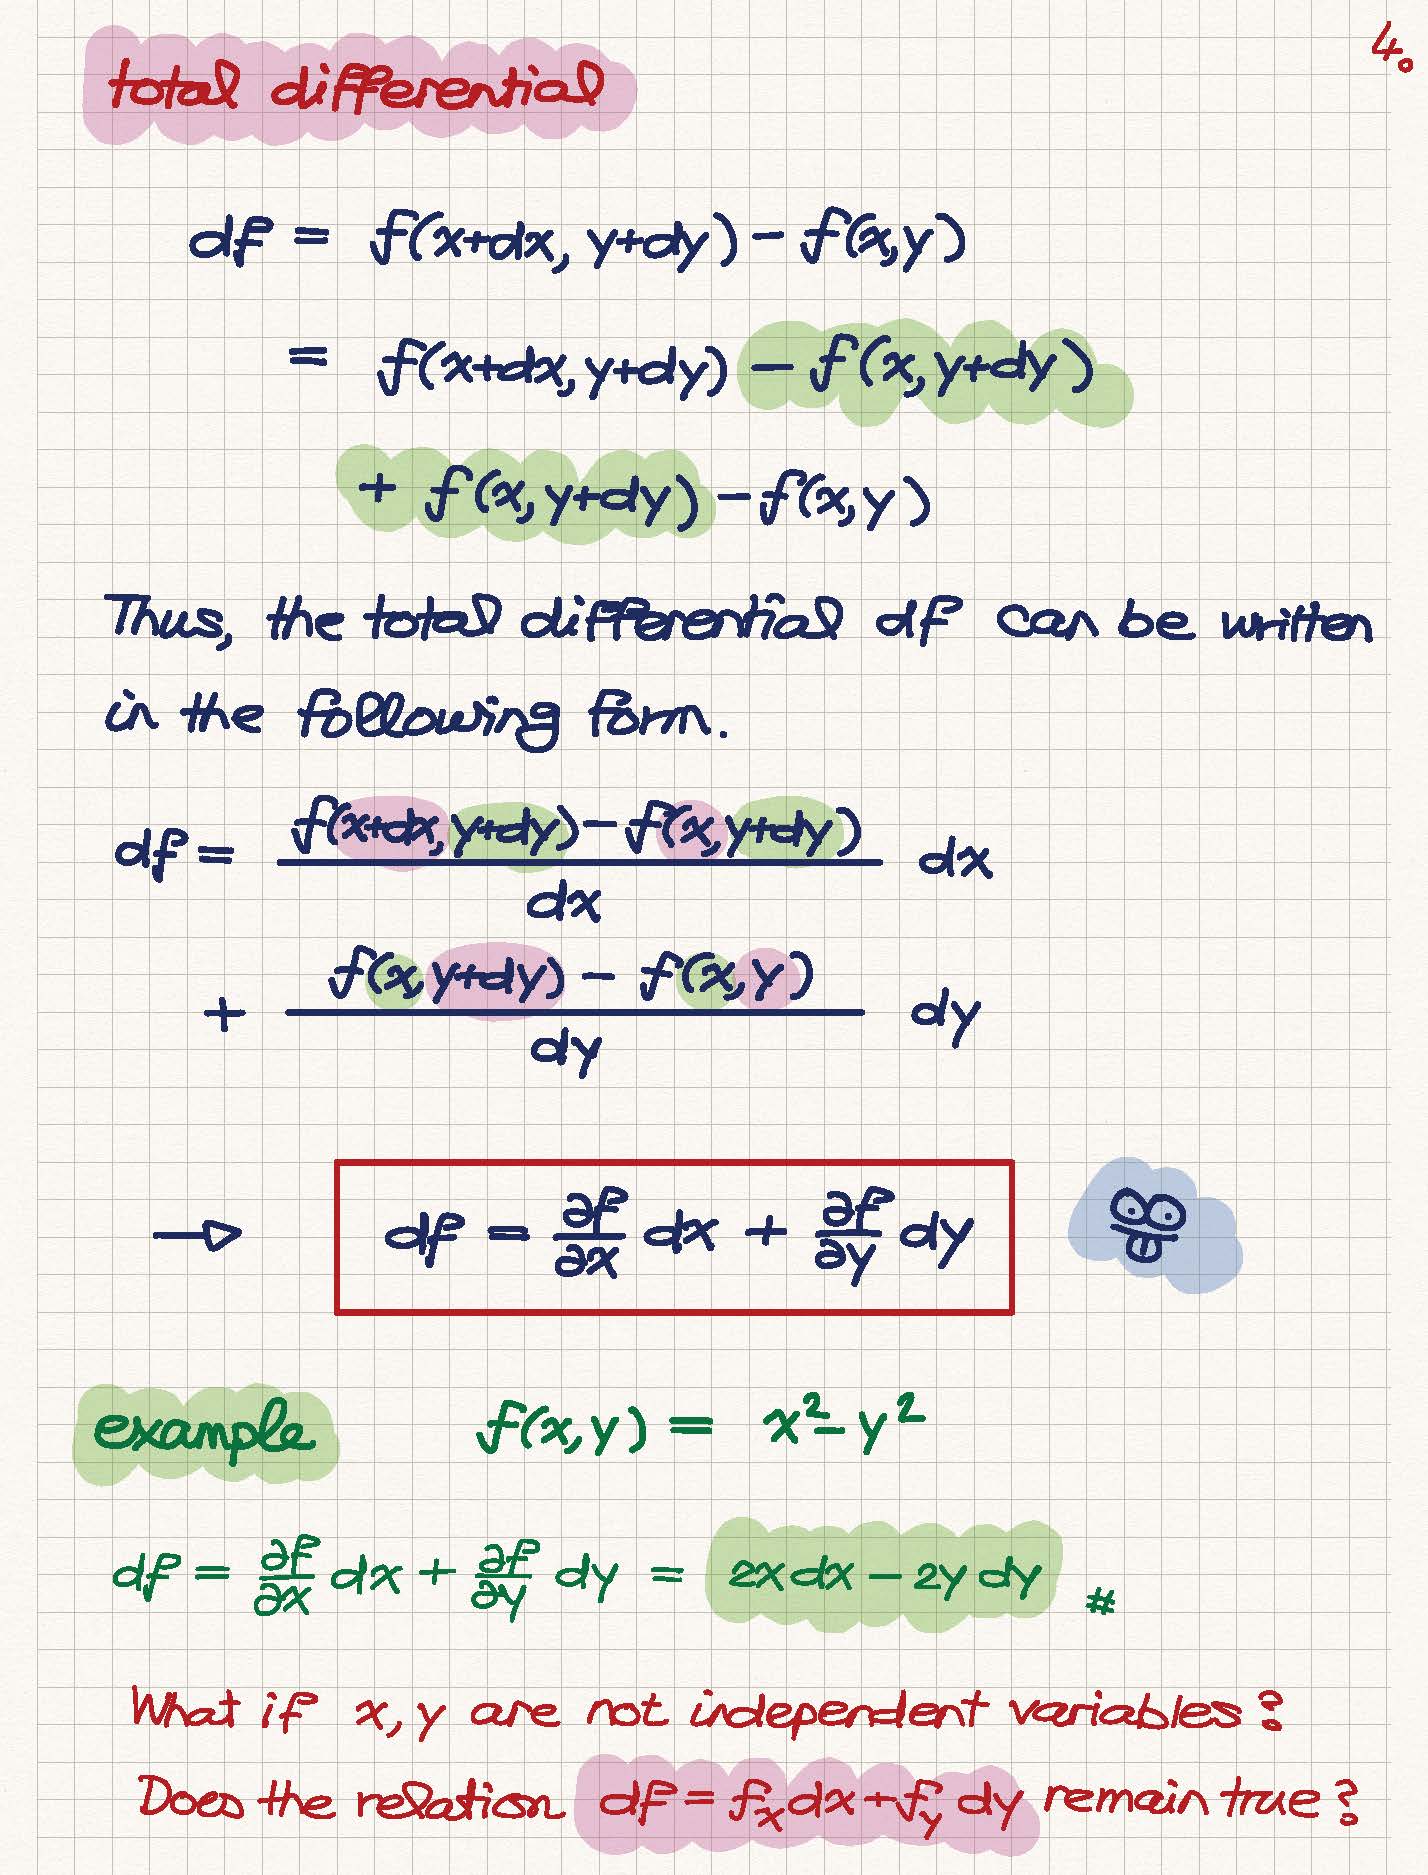 4.
total differential
df = f(x+dx, y+dy) - f(x,y)
= f(x+dx, y+dy) - f(x, y+dy)
+ f(x, y+dy) - f(x, y)
Thus, the total differential df can be written
in the following form.
df = \frac{f(x+dx, y+dy) - f(x, y+dy)}{dx} dx
+ \frac{f(x, y+dy) - f(x, y)}{dy} dy
→ df = \frac{∂f}{∂x} dx + \frac{∂f}{∂y} dy
example f(x, y) = x² - y²
df = \frac{∂f}{∂x} dx + \frac{∂f}{∂y} dy = 2x dx - 2y dy #
What if x, y are not independent variables?
Does the relation df = f_x dx + f_y dy remain true?